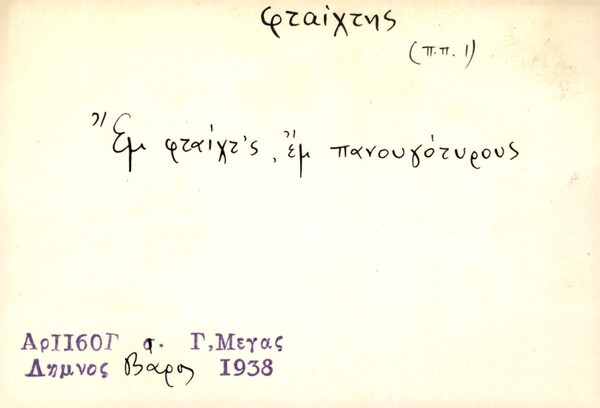 φταίχτης
(π.π. 1)
Ἔμ φταίχτ'ς, ἔμ πανουγότυρους
Αρ1160Γ σ. Γ,Μεγας
Λημνος Βάρος 1938